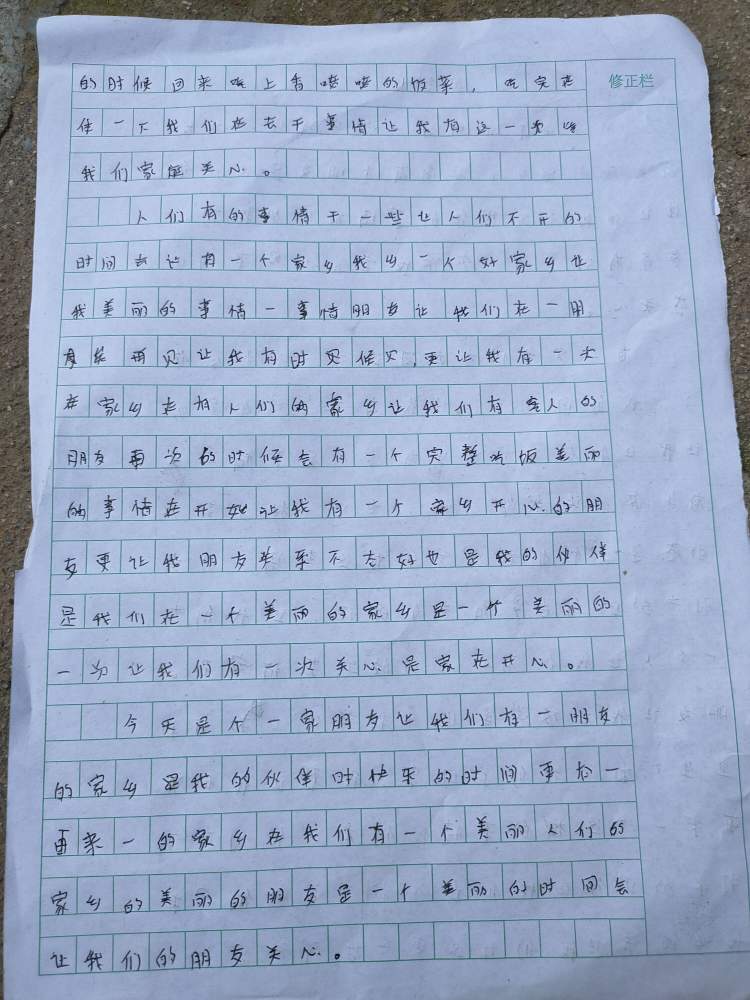 的时候回来吃上香喷喷的饭菜，吃完在 修正栏
住一下我们在去干事情让我有这一为
我们家庭关心。
人们有的事情干一些让人们不开的
时间去让有一个家乡我乡一个好家乡让
我美丽的事情一事情朋友让我们在一朋
友 再见让我有时见候见,更让我有一关
在家乡走有人们的家乡让我们有客人的
朋友再次的时候会有一个完整吃饭美丽
的事情在开始让我有一个家乡开心的朋
友更让我朋友关系不太好也是我的伙伴
是我们在一个美丽的家乡是一个美丽的
一为让我们有一次关心是家在开心。
今天是个一家朋友让我们有一朋友
的家乡是我的伙伴时快乐的时间更在一
再来一的家乡在我们有一个美丽人们的
家乡的美丽的朋友是一个美丽的时间会
让我们的朋友关心。